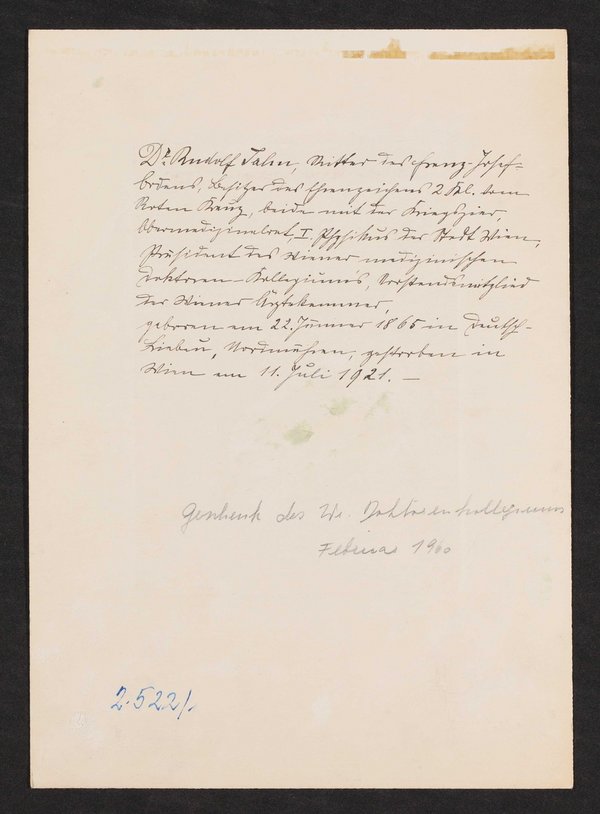 Dr. Rudolf Jahn, Ritter des Franz-Josef-
Ordens, Besitzer des Ehrenzeichens 2 Kl. vom
Roten Kreuz, beide mit der Kriegszier,
Obermedizinalrat, I. Physikus der Stadt Wien,
Präsident des Wiener medizinischen
Doktoren-Kollegiums, Vorstandsmitglied
der Wiener Ärztekammer,
geboren am 22. Jänner 1865 in Deutsch-
Liebau, Nordmähren, gestorben in
Wien am 11. Juli 1921. —
Geschenk des W. Doktorenkollegiums
Februar 1960
2.522/.